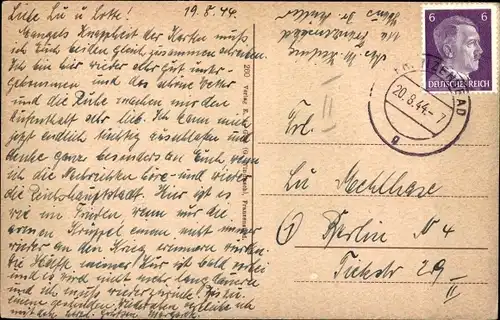 Liebe Lu u Lotte! 19.8.44.
Mangels Knappheit der Karten muß
ich Euch beiden gleich zusammen schreiben.
Ich bin hier wieder sehr gut unter-
gekommen und das schöne Wetter
und die Ruhe machen mir den
Aufenthalt sehr lieb. Ich kann mich
jetzt endlich richtig ausschlafen und
denke ganz besonders an Euch wenn
ich die Nachrichten höre und wieder
die Reichshauptstadt. Hier ist es
wie im Frieden, wenn nur die
armen Krüppel einen nicht immer
wieder an den Krieg erinnern würden.
Die Hälfte meiner Kur ist bald vorbei
und es wird nicht mehr lange dauern
und ich muß wieder zurück. Bis zu
einem gesunden Wiedersehen
mit den herzl. Grüßen
200 Verlag
6 6
DEUTSCHES REICH
20.8.44.-7
Frl.
Lu Mechthase
Berlin N 4
Tieckstr 29
II